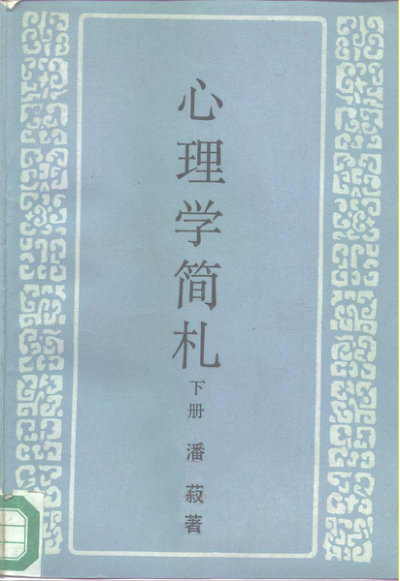 心理学简札
下册
潘菽著